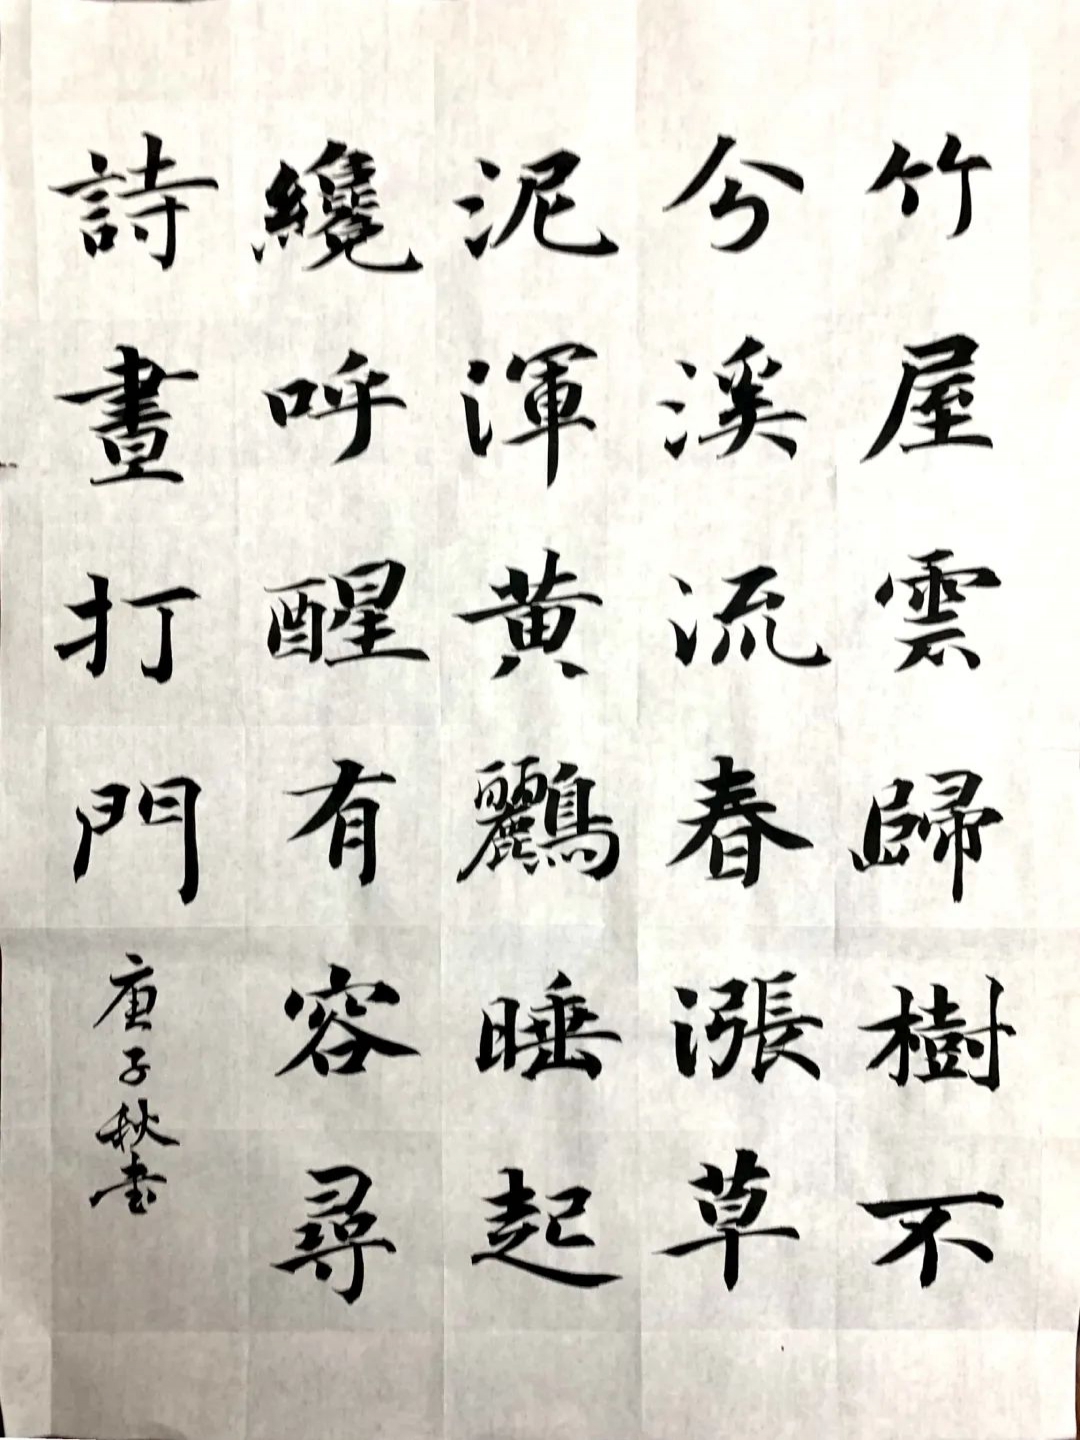 竹屋雲歸樹不
兮溪流春漲草
泥渾黃鸝睡起
纔呼醒有容尋
詩畫打門
庚子秋書